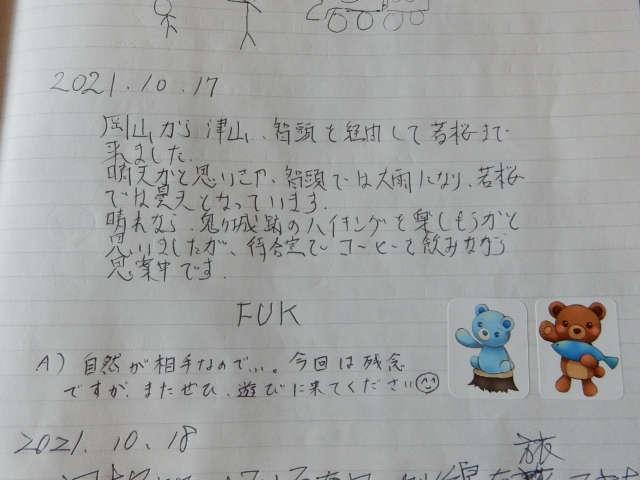 2021.10.17
岡山から津山、智頭を経由して若桜まで
来ました.
晴天かと思いきや、智頭では大雨になり、若桜
では曇天となっています.
晴れなら、鬼ヶ城跡のハイキングを楽しもうかと
思いましたが、待合室でコーヒーを飲みながら
思案中です.
FUK
A) 自然が相手なので…。今回は残念
ですが、またぜひ、遊びに来てください
2021.10.18
旅